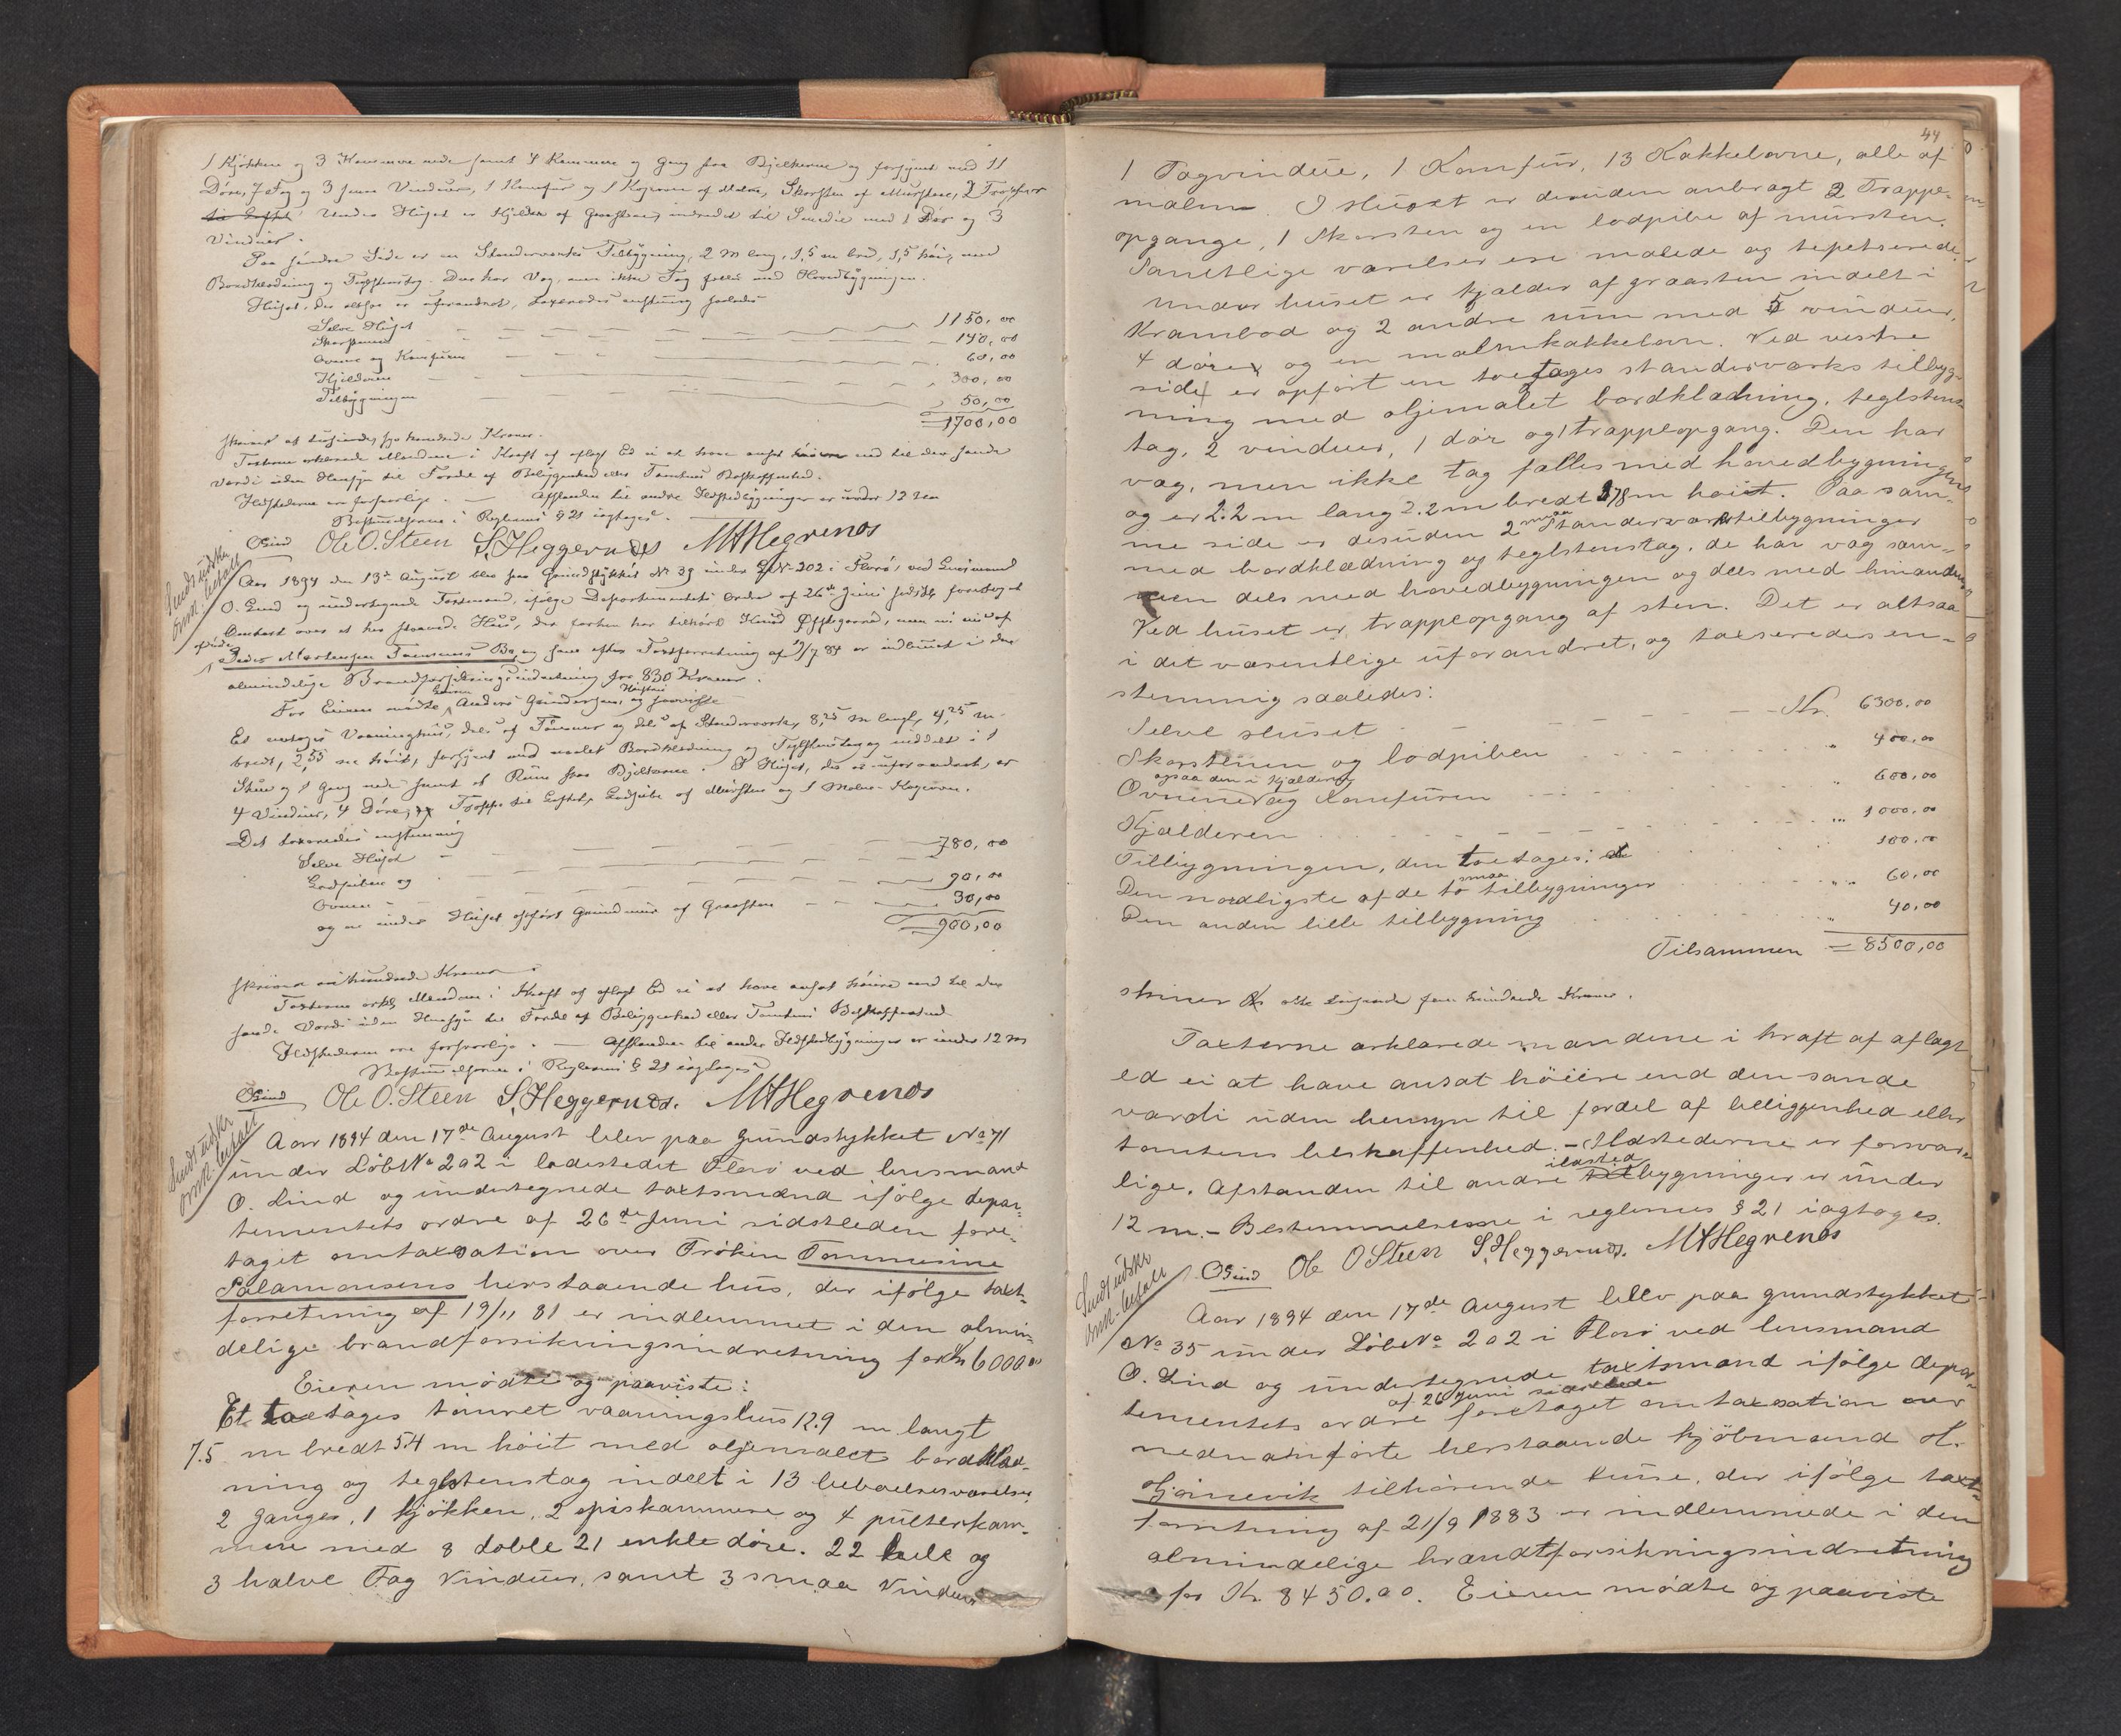 1 Kjøkken og 3 Kamrene nede samt 4 Kamrene og Gang paa Bjelkerne og forsynet med 11
Døre, 7 Fag og 3 smaa Vinduer, 1 Komfur og 1 Kogeovn af Malm, Skorsten af Mursten, 2 Trapper
til Loftet. Under Huset er Kjelder af Graasten, indredet til Smedie med 1 Dør og 3
Vinduer.
Paa søndre Side er en Standerværks Tilbygning, 2 m lang, 1,5 m bred, 1,5 høi, med
Bordklædning og Teglstenstag. Den har Væg, men ikke Tag fælles med Hovedbygningen.
Huset, der altsaa er uforandret, taxeredes enstemmig saaledes
Selve Huset 1150,00
Skorstenen 140,00
Ovne og Komfuren 60,00
Kjelderen 300,00
Tilbygningen 50,00
1700,00
skriver et tusinde syv hundrede Kroner.
Taxterne erklærede Mændene i Kraft af aflagt Ed ei at have ansat høiere end til den sande
Værdi uden Hensyn til Fordel af Beliggenhed eller Tomtens Beskaffenhed.
Ildstederne ere forsvarlige. — Afstanden til andre Ildstedbygninger er under 12 m
Bestemmelserne i Reglernes § 21 iagtages.
OLind Ole O. Steen S. Heggernæs M A Hegrenæs
Sendt udskr.
Aar 1894 den 13de August blev paa Grundstykket No 39 under LNo 202 i Florø, ved Lensmand
O. Lind og undertegnede Taxtmænd, ifølge Departementets Ordre af 26de Juni sidstl. foretaget
Omtaxt over et her staaende Hus, der forhen har tilhørt Knud, men nu eies af
Peder Mortensen Bø, og som efter Taxtforretning af 84 er indlemmet i den
almindelige Brandforsikringsindretning for 830 Kroner.
For Eieren mødte Anders Gundersen, og paaviste
Et enetages Vaaningshus, dels af Tømmer og dels af Standerværk, 8,25 m langt, 4,25 m
bredt, 2,55 m høit, forsynet med malet Bordklædning og Teglstenstag og inddelt i 1
Stue og 1 Gang nede samt et Rum paa Bjelkerne. I Huset, der er uforandret, er
4 Vinduer, 4 Døre, Trappe til Loftet, Lodpibe af Mursten og 1 Malm-Kogeovn.
Det taxeredes enstemmig
Selve Huset 780,00
Lodpiben og 90,00
Ovnen 30,00
og er under Huset opført Grundmur af Graasten
900,00
skriver ni hundrede Kroner.
Taxterne erkl. Mændene i Kraft af aflagt Ed ei at have ansat høiere end til den
sande Værdi uden Hensyn til Fordel af Beliggenhed eller Tomtens Beskaffenhed
Ildstederne ere forsvarlige. — Afstanden til andre Ildstedbygninger er under 12 m
Bestemmelserne i Reglernes § 21 iagtages
OLind Ole O. Steen S. Heggernæs. M A Hegrenæs
Sendt udskr.
Aar 1894 den 17de August blev paa grundstykket No 71
under LøbNo 202 i ladestedet Florø ved lensmand
O. Lind og undertegnede taxtsmænd ifølge depar-
tementets ordre af 26de Juni sidstleden fore-
taget omtaxation over Frøken Tommesine
Salamonsens herstaaende hus, der ifølge taxt-
forretning af 19/11 81 er indlemmet i den almin-
delige brandforsikringsindretning for Kr 6000.00
Eieren mødte og paaviste:
Et toetages tømret vaaningshus 12.9 m langt
7.5 m bredt 5.4 m høit med oljemalet bordklæd-
ning og teglstenstag indelt i 13 beboelsesværelser
2 gange, 1 kjøkken, 2 spiskammere og 4 pulterkam-
mere med 8 doble 21 enkle døre. 22 hele og
3 halve Fag Vinduer, samt 3 smaa Vinduer
44
1 Tagvindue, 1 Komfur, 13 Kakkelovne, alle af
malm. I Huset er desuden anbragt 2 Trappe-
opgange, 1 Skorsten og en lodpibe af mursten.
Samtlige værelser ere malede og tepetserede.
Under huset er kjælder af graasten indelt i
Krambod og 2 andre rum med 5 vinduer,
4 døre og en malmkakkelovn. Ved vestre
side er opført en toetages standerværks tilbyg-
ning med oljemalet bordklædning, teglstens
tag, 2 vinduer, 1 dør og 1 trappeopgang. Den har
væg, men ikke tag fælles med hovedbygningen
og er 2.2 m lang 2.2 m bredt m høiet. Paa sam-
me side er desuden 2 smaa standerværkstilbygninger
med bordklædning og teglstenstag, de har væg sam-
men dels med hovedbygningen og dels med hinanden
Ved huset er trappeopgang af sten. Det er altsaa
i det væsentlige uforandret, og taxseredes en-
stemmig saaledes:
Selve Huset Kr. 6300.00
Skorstenen og lodpiben " 400,00
Ovnene ogsaa den i kjælderen og Komfuren " 600,00
Kjælderen " 1000.00
Tilbygningen, den toetages 100.00
Den nordligste af de to smaa tilbygninger " 60,00
Den anden lille tilbygning " 40.00
Tilsammen = 8500,00
skriver otte tusinde fem hundrede Kroner.
Taxterne erklærede mændene i kraft af aflagt
ed ei at have ansat høiere end den sande
værdi uden hensyn til fordel af beliggenhed eller
tomtens beskaffenhed. – Ildstederne er forsvar-
lige. Afstanden til andre ildsted bygninger er under
12 m. – Bestemmelserne i reglernes § 21 iagtages.
OLind Ole O Steen S. Heggernæs. M A Hegrenæs
Sendt udskr.
Aar 1894 den 17de August blev paa grundstykket
No 35 under LøbeNo 202 i Florø ved lensmand
O. Lind og undertegnede taxtsmænd ifølge depar-
tementets ordre af 26 Juni sidstleden foretaget omtaxation over
nedenanførte herstaaende kjøbmand H.
tilhørende huse, der ifølge taxt-
forretning af 21/9 1883 er indlemmede i den
almindelige brandtforsikringsindretning
for Kr. 8450.00. Eieren mødte og paaviste